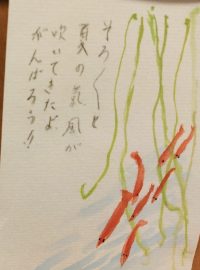 そろ〱と
夏の気風が
吹いてきたよ
がんばろう!!